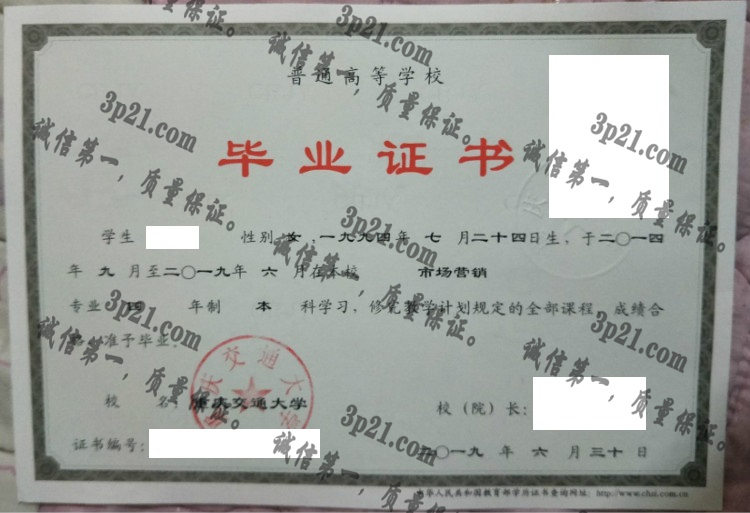 普通高等学校
毕业证书
学生 性别 女 ,一九九四年 七 月二十四日生, 于二〇一四
年 九 月至二〇一九年 六 月在本校 市场营销
专业 四 年制 本 科学习, 修完教学计划规定的全部课程, 成绩合
准予毕业。
校 名: 重庆交通大学 校（院）长:
证书编号: 〇一九 年 六 月 三十 日
中华人民共和国教育部学历证书查询网址: http://www.chsi.com.cn
3p21.com
诚信第一，质量保证。
3p21.com
诚信第一，质量保证。
3p21.com
诚信第一，质量保证。
3p21.com
诚信第一，质量保证。
3p21.com
诚信第一，质量保证。
3p21.com
诚信第一，质量保证。
3p21.com
诚信第一，质量保证。
3p21.com
诚信第一，质量保证。
诚信第一，质量保证。